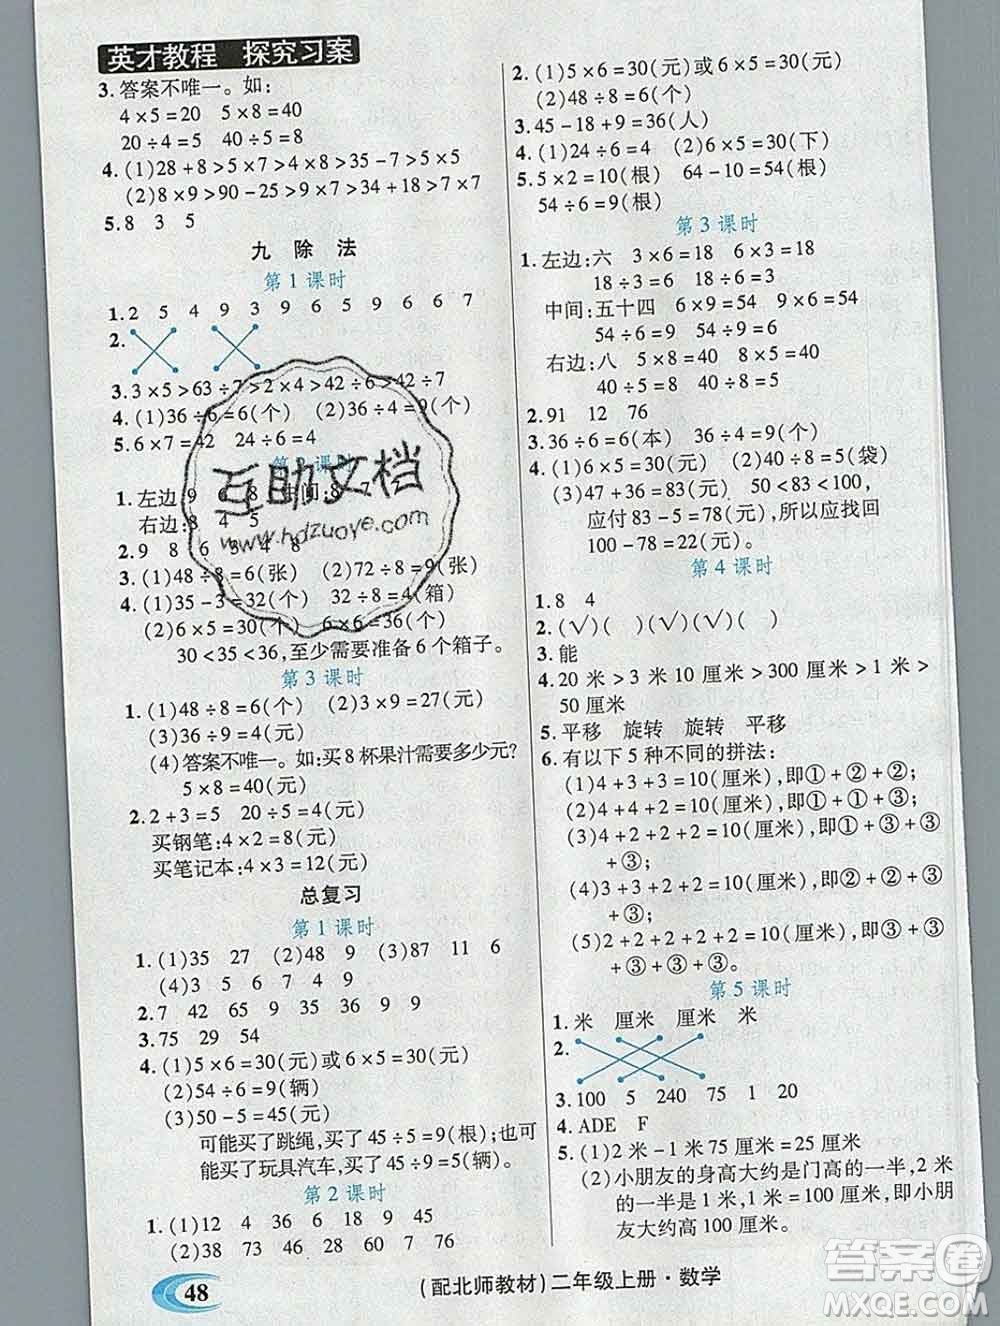 英才教程 探究习案
3. 答案不唯一。如:
4×5=20 5×8=40
20÷4=5 40÷5=8
4. (1)28+8>5×7>4×8>35-7>5×5
(2)8×9>90-25>9×7>34+18>7×7
5. 8 3 5
九 除 法
第1课时
1. 2 5 4 9 3 6 9 5 9 6 6 7
2.
3. 3×5>63÷7>2×4>42÷6>42÷7
4. (1)36÷6=6(个) (2)36÷4=9(个)
5. 6×7=42 24÷6=4
第2课时
1. 左边:9 6 8 中间:8 7
右边:8 4 5
2. 9 8 6 3 4 8
3. (1)48÷8=6(张) (2)72÷8=9(张)
4. (1)35-3=32(个) 32÷8=4(箱)
(2)6×5=30(个) 6×6=36(个)
30<35<36,至少需要准备6个箱子。
第3课时
1. (1)48÷8=6(个) (2)3×9=27(元)
(3)36÷4=9(元)
(4)答案不唯一。如:买8杯果汁需要多少元?
5×8=40(元)
2. 2+3=5 20÷5=4(元)
买钢笔:4×2=8(元)
买笔记本:4×3=12(元)
总复习
第1课时
1. (1)35 27 (2)48 9 (3)87 11 6
(4)3 5 6 7 4 9
2. 7 42 65 9 35 9 9 7
3. 75 29 54
4. (1)5×6=30(元)或6×5=30(元)
(2)54÷6=9(辆)
(3)50-5=45(元)
可能买了跳绳,买了45÷5=9(根);也可
能买了玩具汽车,买了45÷9=5(辆)。
第2课时
1. (1)12 4 36 6 18 9 45
(2)38 73 28 37 62 54
2. (1)5×6=30(元)或6×5=30(元)
(2)48÷8=6(个)
3. 45-18+9=36(人)
4. (1)24÷6=4 (2)6×5=30(下)
5. 5×2=10(根) 64-10=54(根)
54÷6=9(根)
第3课时
1. 左边:六 3×6=18 6×3=18
18÷3=6 18÷6=3
中间:五十四 6×9=54 9×6=54
54÷6=9 54÷9=6
右边:八 5×8=40 8×5=40
40÷5=8 40÷8=5
2. 91 12 76
3. 36÷6=6(本) 36÷4=9(个)
4. (1)6×5=30(元) (2)40÷8=5(袋)
(3)47+36=83(元) 50<83<100,
应付83-5=78(元),所以应找回
100-78=22(元)。
第4课时
1. 8 4
2. (√)( )(√)(√)( )
3. 能
4. 20米>3米10厘米>300厘米>1米>
50厘米
5. 平移 旋转 旋转 平移
6. 有以下5种不同的拼法:
(1)4+3+3=10(厘米),即①+②+②;
(2)4+4+2=10(厘米),即①+①+③;
(3)4+2+2+2=10(厘米),即①+③+③
+③;
(4)3+3+2+2=10(厘米),即②+②+③
+③;
(5)2+2+2+2+2=10(厘米),即③+③
+③+③+③。
第5课时
1. 米 厘米 厘米 米
2.
3. 100 5 240 75 1 20
4. ADE F
5. (1)2米-1米75厘米=25厘米
(2)小朋友的身高大约是门高的一半,2米
的一半是1米,1米=100厘米,即小朋
友大约高100厘米。
48
(配北师教材)二年级上册·数学
互助文档
www.hdzuoye.com
答案圈
MXQE.COM